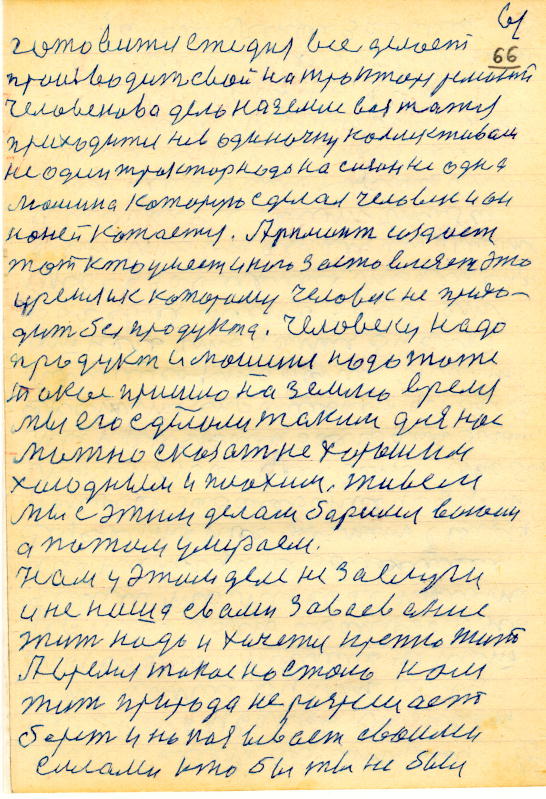 61
66
готовится стидия все делает
производит свой на трактори ремонт
Человекова дель на земле вся тажия
приходится не в одиночку коллективам
не один трактор надо на сизон не одна
машина которую сделал человек и он
на ней катается. А ремонт создает
тот кто умеет и кого заставляет это
время к которому человек не прихо-
дит без продукта. Человеку надо
продукт и машини надо тоже
такое пришло на землю время
мы его сделали таким для нас
можно сказат не хорошим
холодным и плохим. живем
мы с этим делам баримся воюим
а потом умираем.
Нам у этом деле не заслуги
и не наша свами завоевание
жит надо и хочется крепко жит
А время такое настало нам
жит природа не разришает
берет и наказивает своими
силами кто бы ты не был